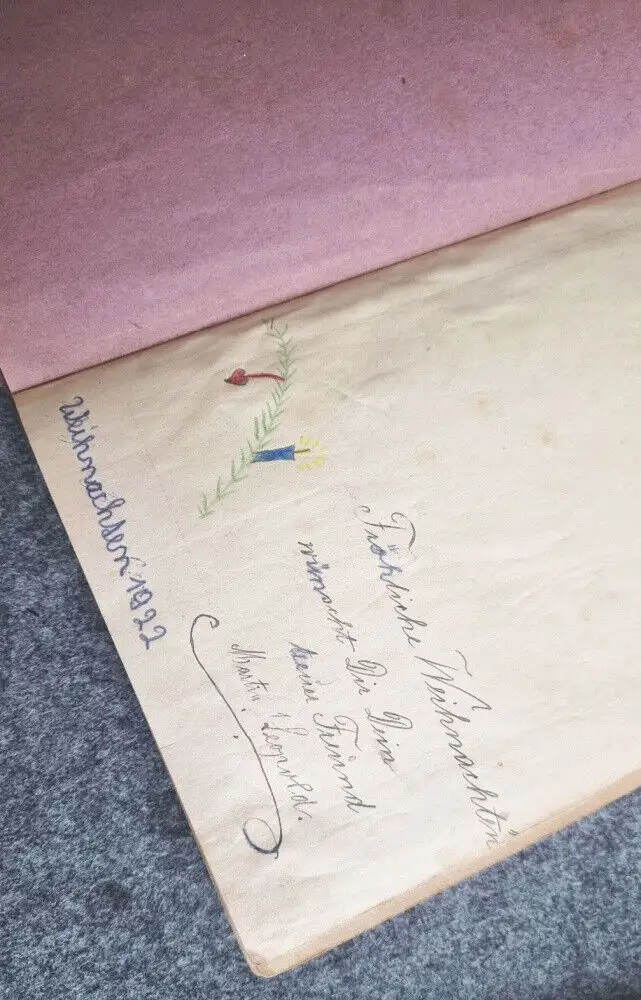 Weihnachten, 1922
Fröhliche Weihnachten
wünscht Dir Dein
Freund
Martin Leopold.